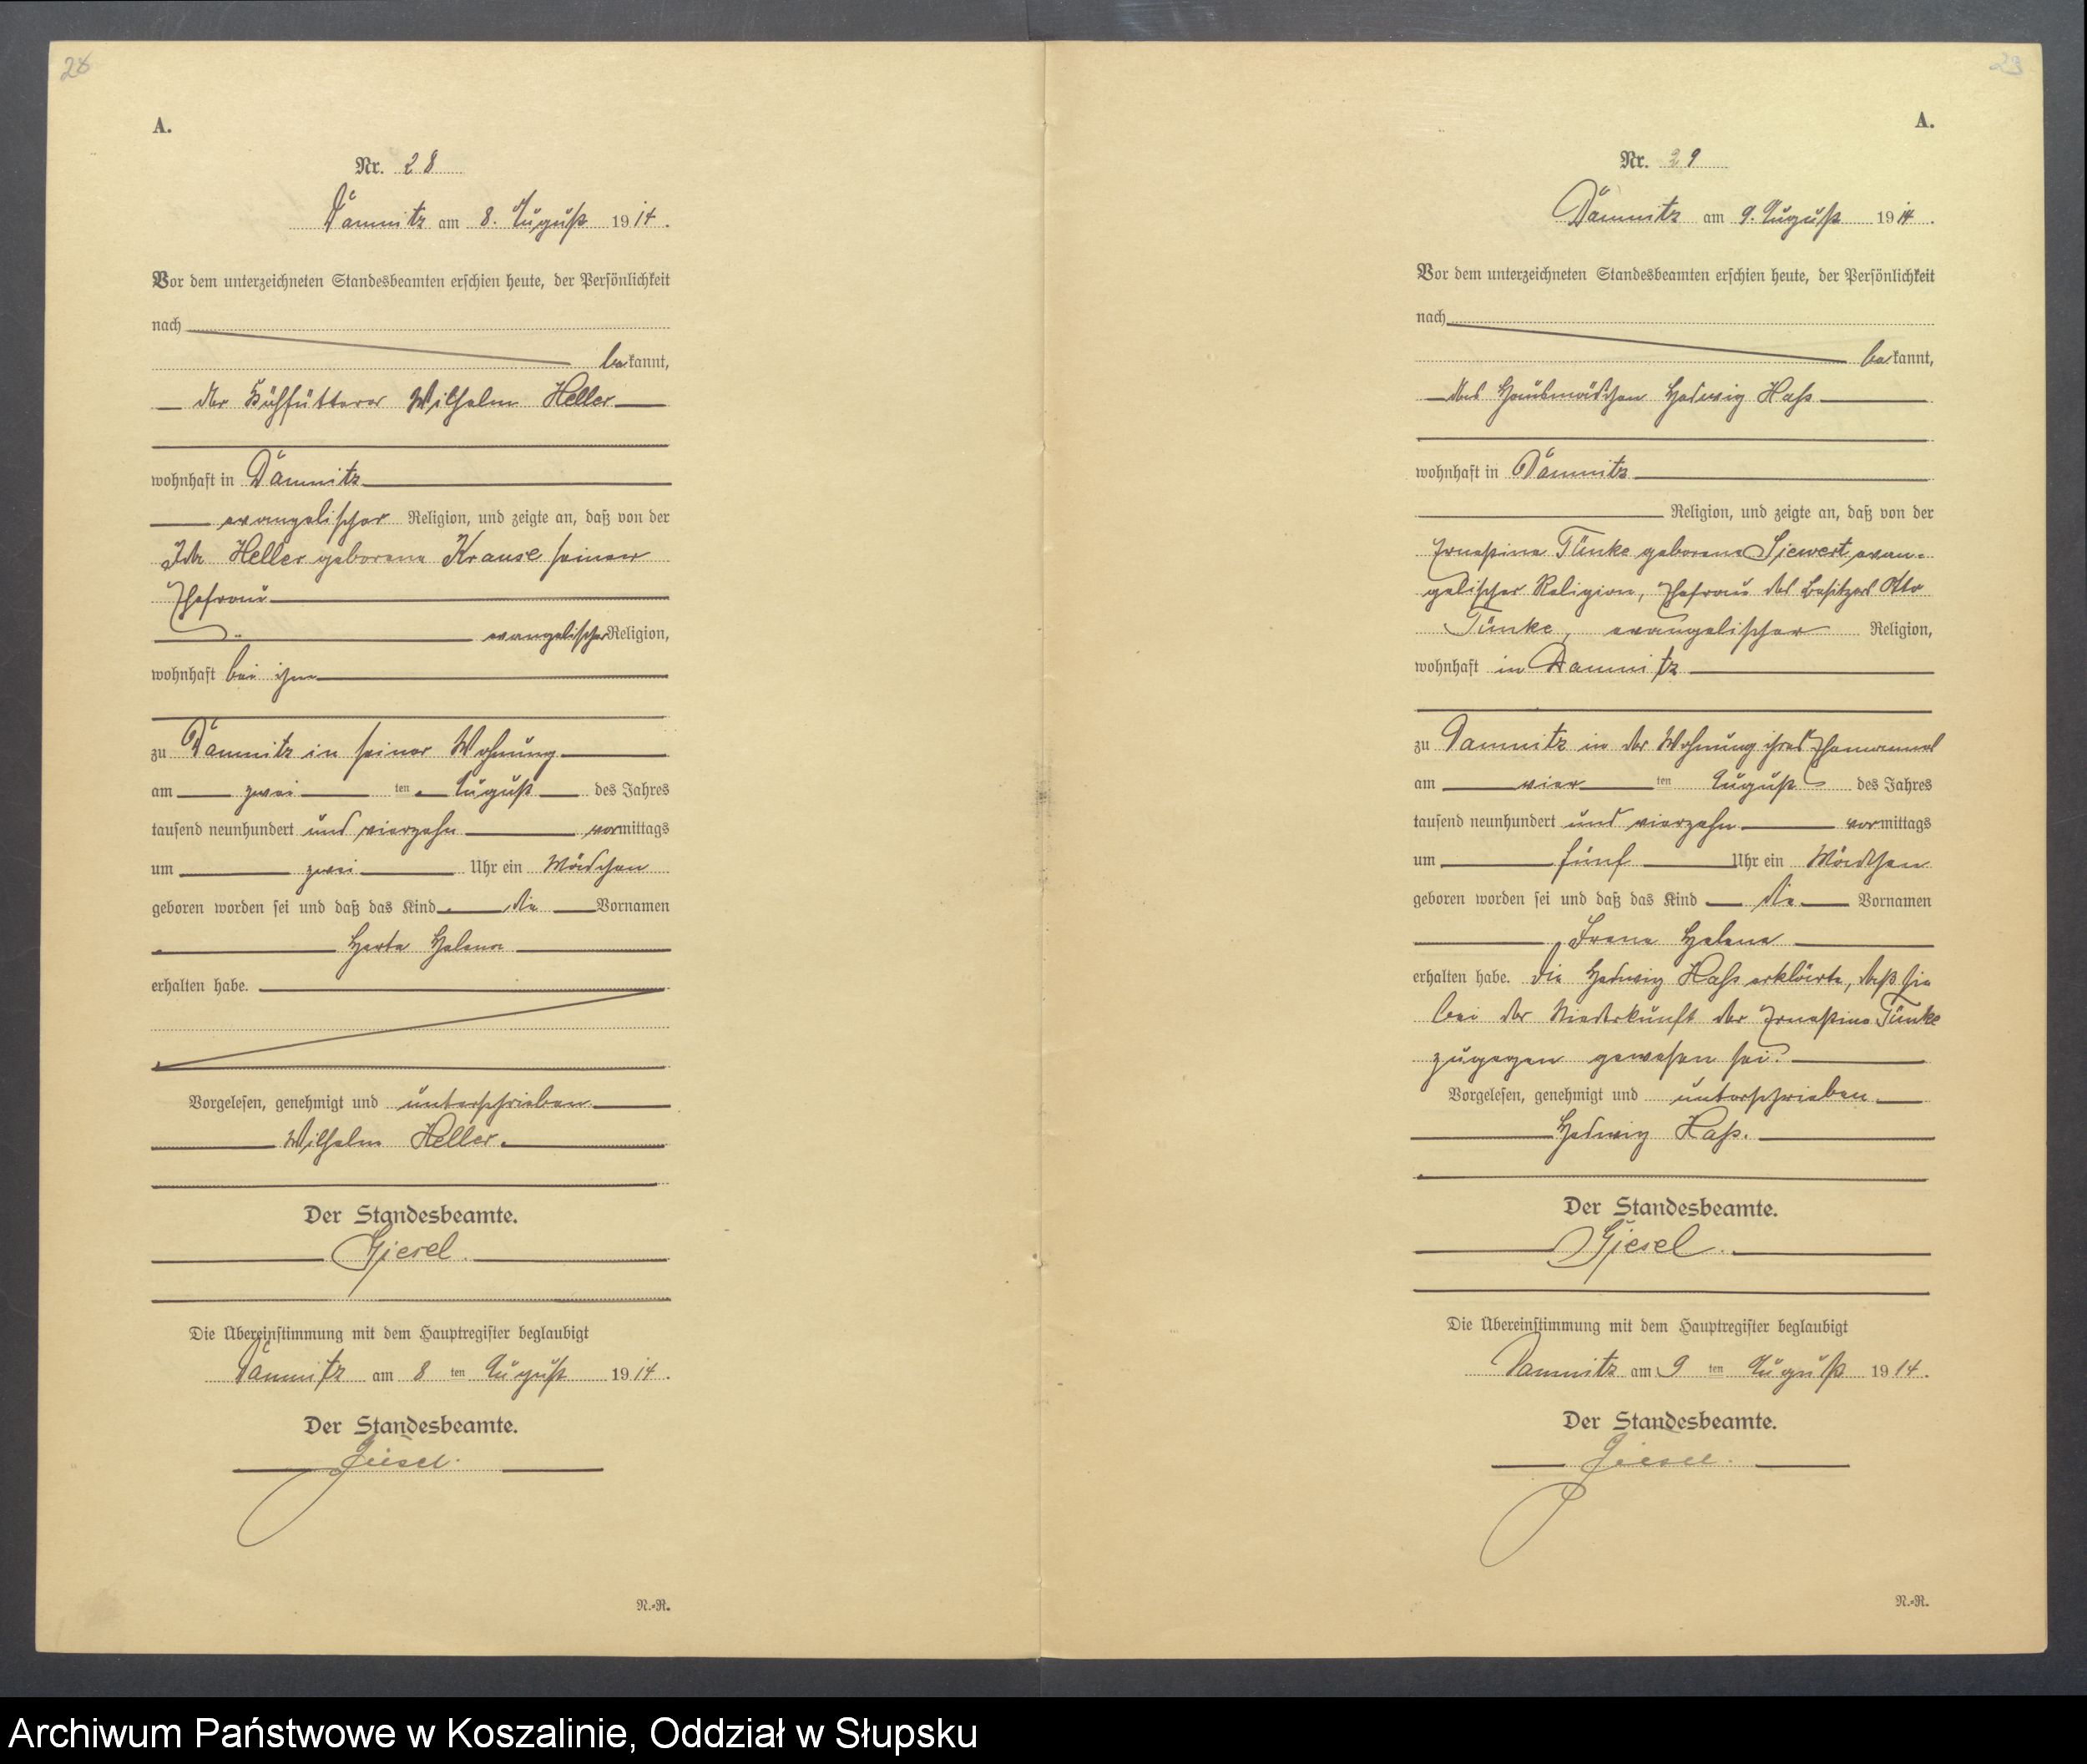 28
A.
Nr. 28
Damnitz am 8. August 1914.
Vor dem unterzeichneten Standesbeamten erschien heute, der Persönlichkeit
nach
bekannt,
der Kühfütterer Wilhelm Heller
wohnhaft in Damnitz
evangelischer Religion, und zeigte an, daß von der
Ida Heller geborene Krause seiner
Ehefrau
evangelischer Religion,
wohnhaft bei ihm
zu Damnitz in seiner Wohnung
am zwei ten August des Jahres
tausend neunhundert und vierzehn vormittags
um zwei Uhr ein Mädchen
geboren worden sei und daß das Kind die Vornamen
Herta Helene
erhalten habe.
Vorgelesen, genehmigt und unterschrieben
Wilhelm Heller.
Der Standesbeamte.
Giesel.
Die Übereinstimmung mit dem Hauptregister beglaubigt
Damnitz am 8 ten August 1914.
Der Standesbeamte.
Giesel.
N.-R.
23
A.
Nr. 29
Damnitz am 9. August 1914.
Vor dem unterzeichneten Standesbeamten erschien heute, der Persönlichkeit
nach
bekannt,
das Hausmädchen Hedwig Hass
wohnhaft in Damnitz
Religion, und zeigte an, daß von der
Ernestine Tünke geborene Siewert, evan-
gelischer Religion, Ehefrau des Besitzers Otto
Tünke, evangelischer Religion,
wohnhaft in Damnitz
zu Damnitz in der Wohnung ihres Ehemannes
am vier ten August des Jahres
tausend neunhundert und vierzehn vormittags
um fünf Uhr ein Mädchen
geboren worden sei und daß das Kind die Vornamen
Irene Helene
erhalten habe. Die Hedwig Hass erklärte, daß sie
bei der Niederkunft der Ernestine Tünke
zugegen gewesen sei.
Vorgelesen, genehmigt und unterschrieben
Hedwig Haß.
Der Standesbeamte.
Giesel.
Die Übereinstimmung mit dem Hauptregister beglaubigt
Damnitz am 9 ten August 1914.
Der Standesbeamte.
Giesel.
N.-R.
Archiwum Państwowe w Koszalinie, Oddział w Słupsku